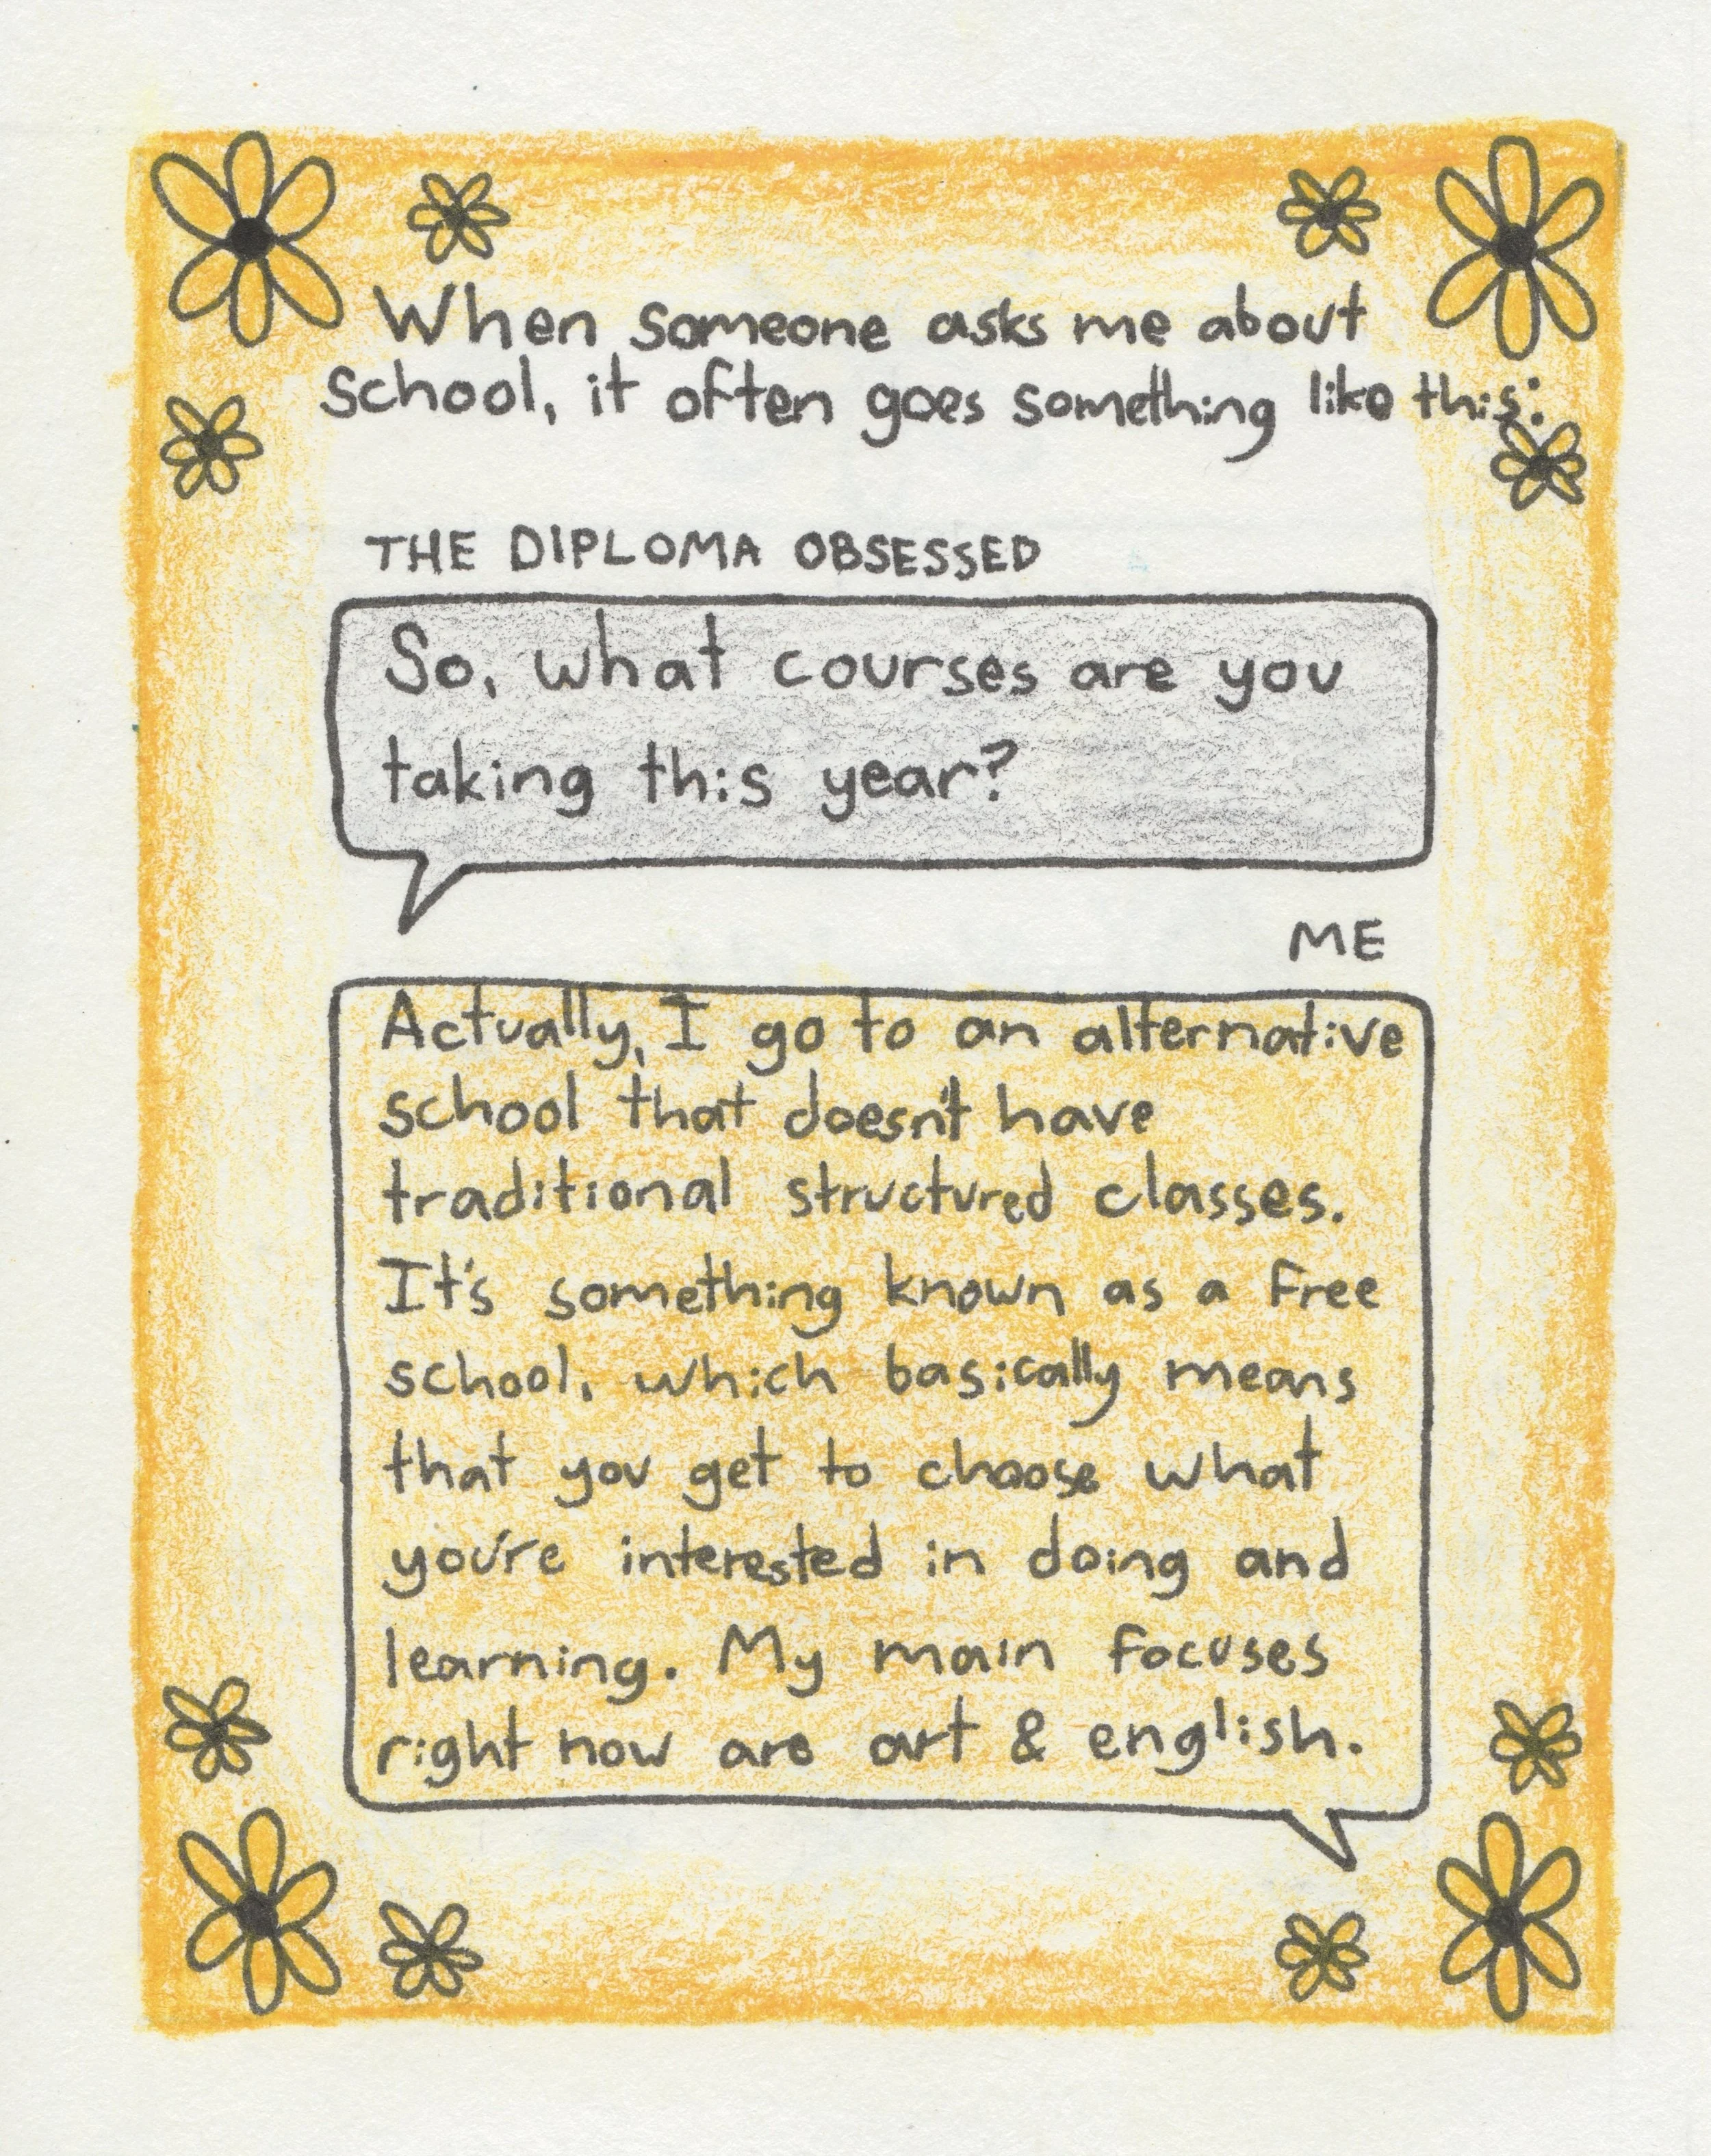 When someone asks me about
school, it often goes something like this:
THE DIPLOMA OBSESSED
So, what courses are you
taking this year?
ME
Actually, I go to an alternative
school that doesn't have
traditional structured classes.
It's something known as a free
school, which basically means
that you get to choose what
you're interested in doing and
learning. My main focuses
right now are art & english.